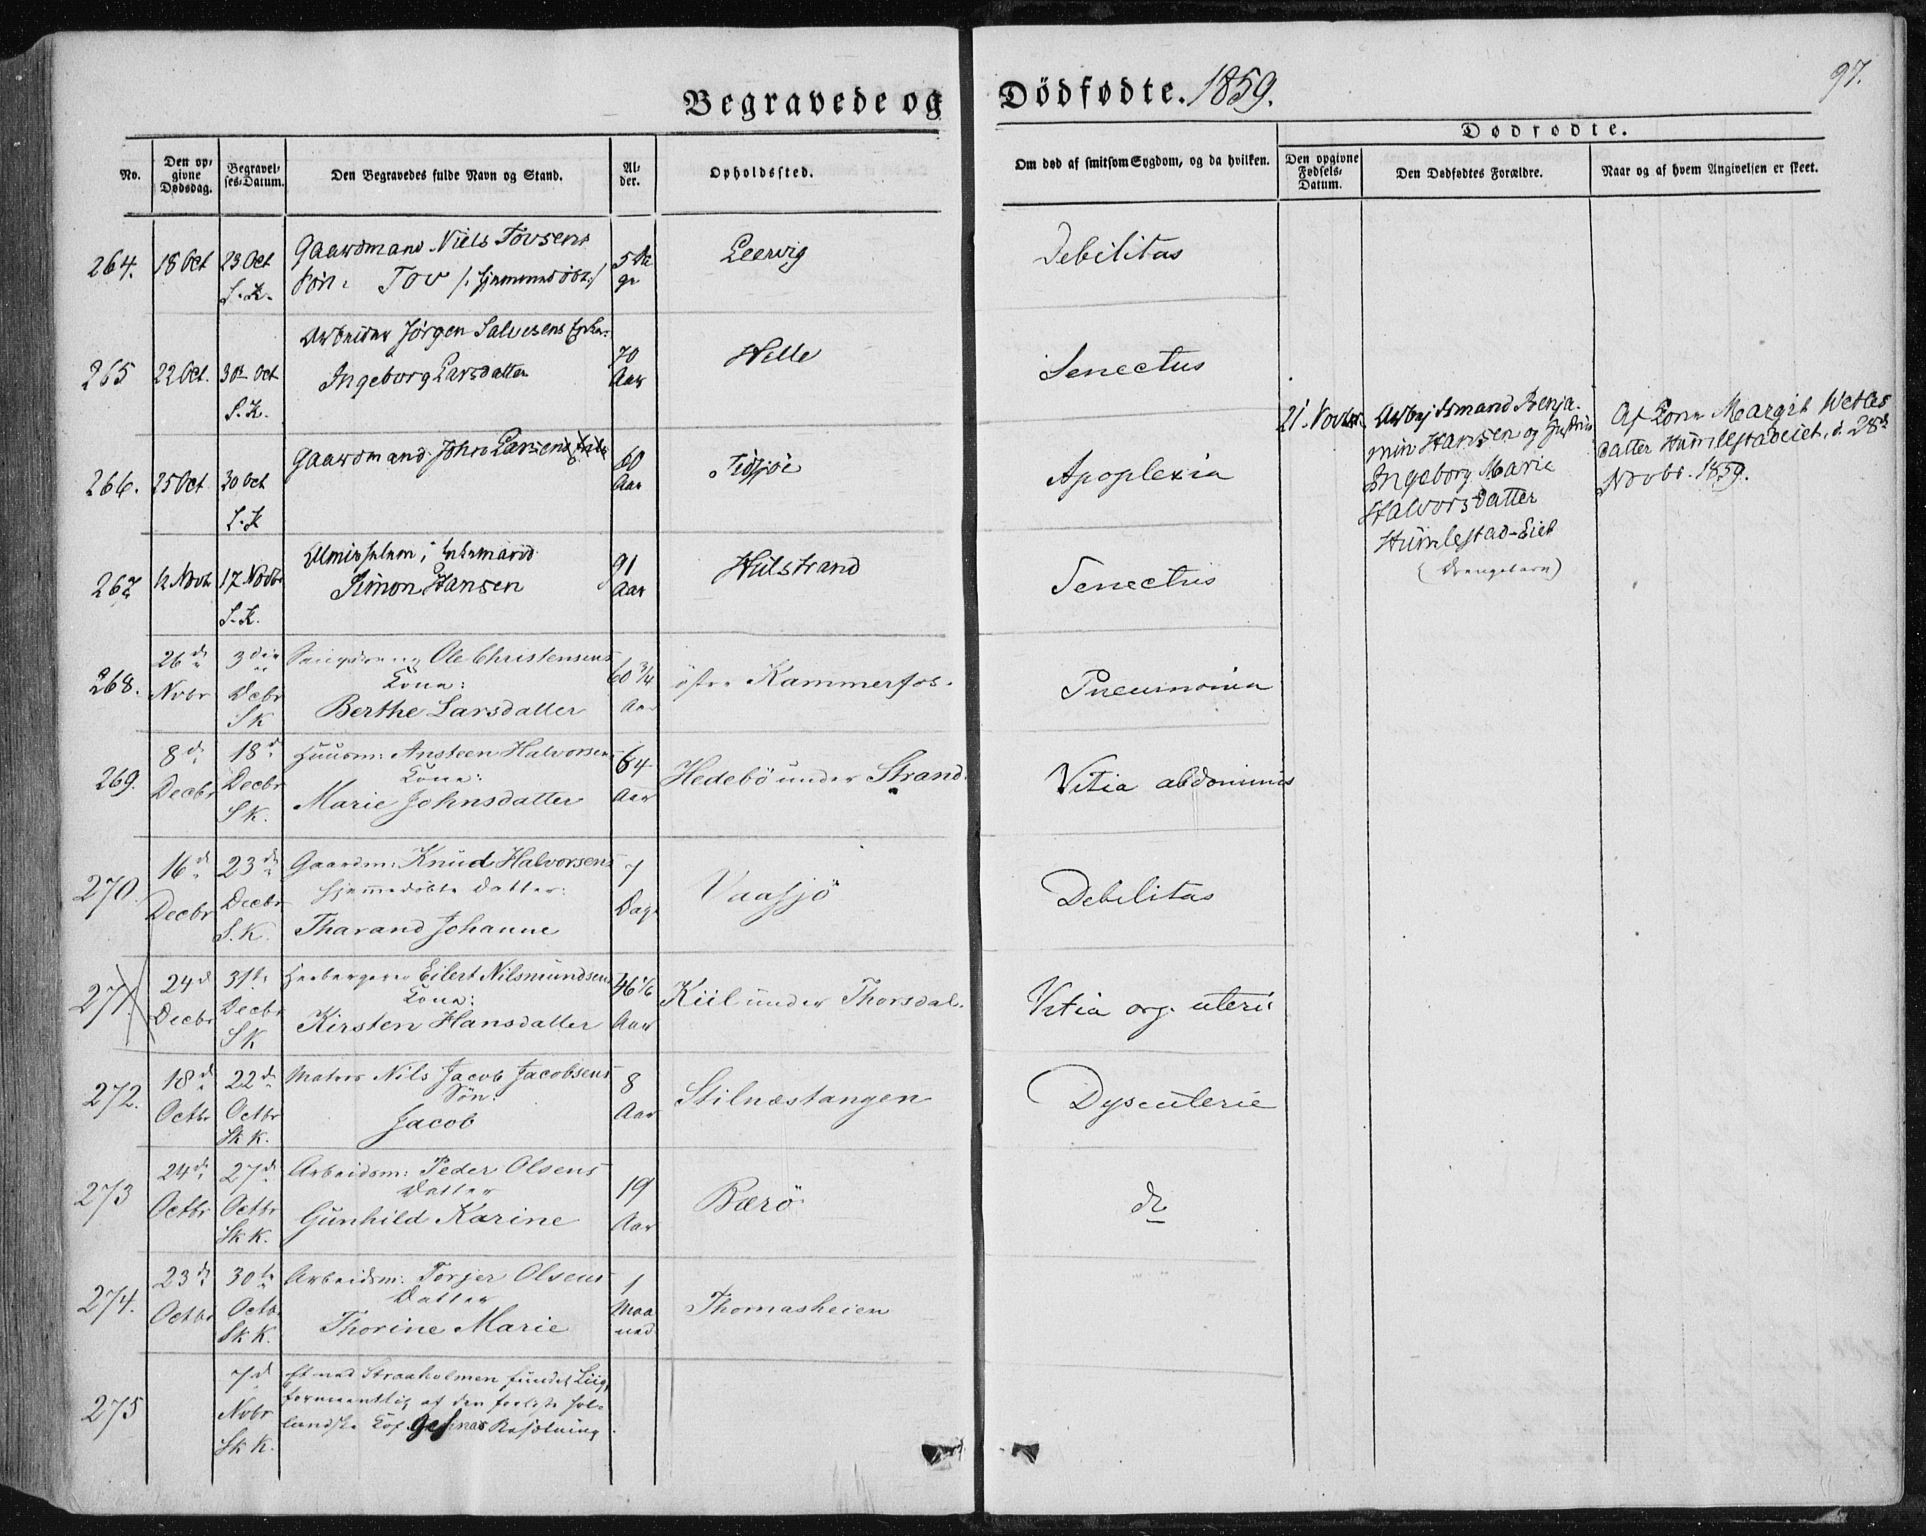 Begravede og Dödfødte. 1859.
97.
Dødfødte.
No.
Den opgivne Dødsdag.
Begravelses-Datum.
Den Begravedes fulde Navn og Stand.
Alder.
Opholdssted.
Om død af smitsom Sygdom, og da hvilken.
Den opgivne Fødsels-Datum.
Den Dødfødtes Forældre.
Naar og af hvem Angivelsen er skeet.
264. 18 Oct 23 Oct Gaardmand Niels Tovsens Leervig Debilitas
S.K. Søn: Tov
265 22 Oct. 30 Oct Arbeider Jörgen Salvesens 70 Helle Senectus
S.K. Ingeborg Larsdatter Aar
266. 25 Oct 30 Oct Gaardmand John Larsens 60 Apoplexia
S.K Aar
267 12 Novb 17 Novbr 91 Hulstrand Senectus
S.K. Simon Hansen Aar
21 Novbr. Arbejdsmand Benja-
min Hansen og Hustru
Ingeborg Marie
Halvorsdatter
Humlestad-Eiet
(Drengebarn)
Af Kone Margit Wetles
datter Humlestadeiet, d. 28d
Novbr. 1859.
268. 26d 3die Ole Christensens 60 3/4 østre Kammerfos. Pneumonia
Novbr Decbr Kone: Aar
SK Berthe Larsdatter
269. 8d 18d Huusm: Ansteen Halvorsens 64 Hedebö under Strand. Vitia abdominis
Decbr Decbr Kone: Aar
SK. Marie Johnsdatter
270. 16d 23d Gaardm: Knud Halvorsens 7 Vaasjö Debilitas
Decbr Decbr hjemmedøbte Datter: Dage
S.K. Tharand Johanne
271. 24d 31te Eilert Nilsmundsens 46 1/6 Kiil under Thorsdal. Vitia org. uteri
Decbr Decbr Kone: Aar
SK Kirsten Hansdatter
272. 18d 22d Matros Nils Jacob Jacobsens 8 Stilnæstangen Dysenterie
Octbr Octbr Søn: Aar
Sk K. Jacob
273 24d 27d Arbeidsm: Peder Olsens 19 Bærö do
Octbr Octbr Datter Aar
Sk K. Gunhild Karine
274. 23d 30te Arbeidsm: Torjer Olsens 1 Thomasheien
Octbr Octbr Datter Maa
Sk K. Thorine Marie ned
275 7d Et ved Straaholmen fundet Liig,
Novbr formeentlig af den forliste hol-
Sk K. landske Kof Besætning